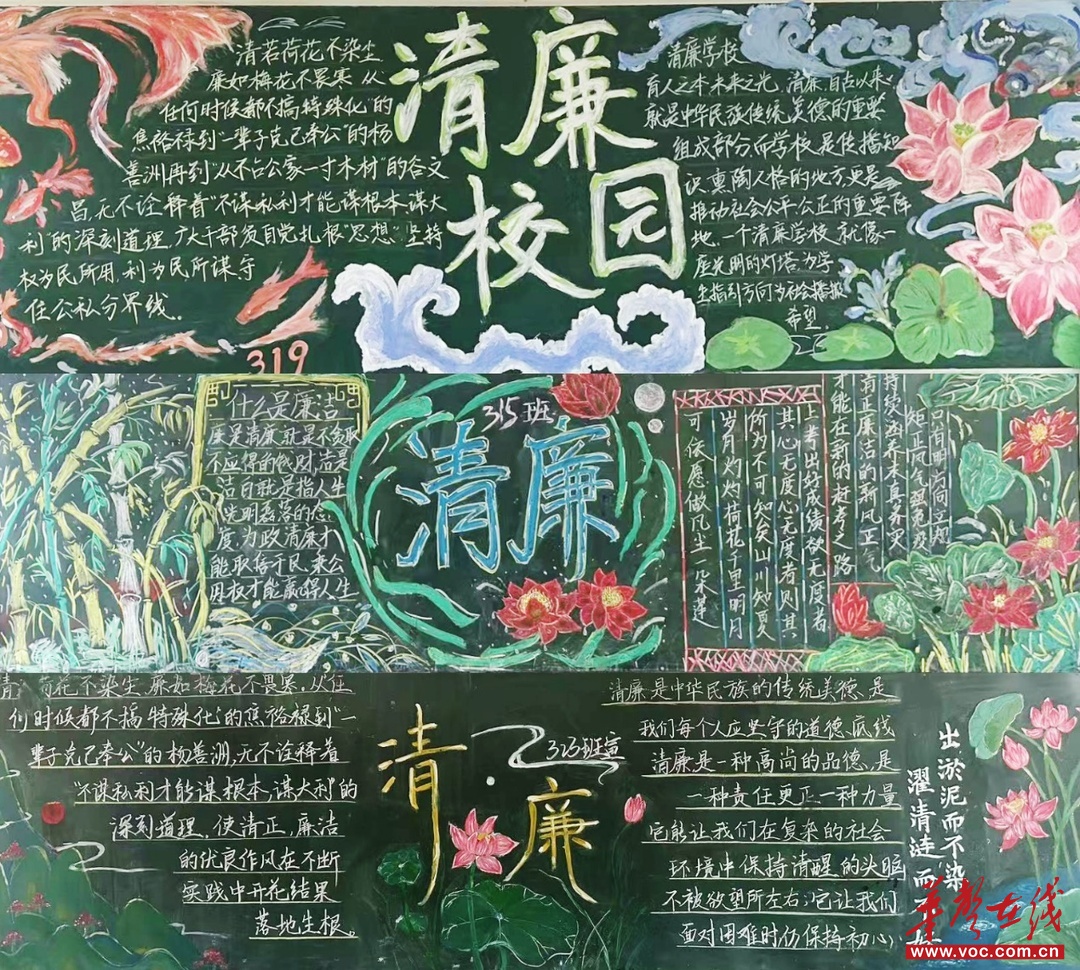 清廉
校园
清若荷花不染尘
廉如梅花不畏寒 从
任何时候都不搞特殊化"的
焦裕禄到"一辈子克己奉公"的杨
善洲再到"从不占公家一寸木材"的谷文
昌,无不诠释着"不谋私利才能谋根本、谋大
利"的深刻道理,广大干部发自觉扎根"思想"坚持
权为民所用,利为民所谋,守
住公私分界线。
319
清廉学校
育人之本,未来之光,清廉,自古以来
就是中华民族传统美德的重要
组成部分,而学校,是传播知
识,熏陶人格的地方,更是
推动社会公平公正的重要阵
地,一个清廉学校,就像一
座光明的灯塔,为学
生指引方向,为社会播撒
希望.
什么是廉洁
廉是清廉,就是不贪取
不应得的钱财;洁是
洁白,就是指人生
光明磊落的态
度,为政清廉才
能取信于民,秉公
用权才能赢得人生
315班
清廉
才能在新的赶考之路
上考出好成绩欲无度者
其心无度心无度者则其
所为不可知矣山川知夏
岁月灼灼荷花千里明月
可依愿做凡尘一朵莲
荷花不染尘,廉如梅花不畏寒,从任
何时候都不搞"特殊化"的焦裕禄到"一
辈子克己奉公"的杨善洲,无不诠释着
"不谋私利才能谋根本,谋大利"的
深刻道理,使清正,廉洁
的优良作风在不断
实践中开花结果
落地生根。
清·廉
323班宣
清廉是中华民族的传统美德,是
我们每个人应坚守的道德底线
清廉是一种高尚的品德,是
一种责任更正一种力量
它能让我们在复杂的社会
环境中保持清醒的头脑
不被欲望所左右;它让我们
面对困难时仍保持初心
出淤泥而不染
濯清涟而不妖
华声在线
www.voc.com.cn